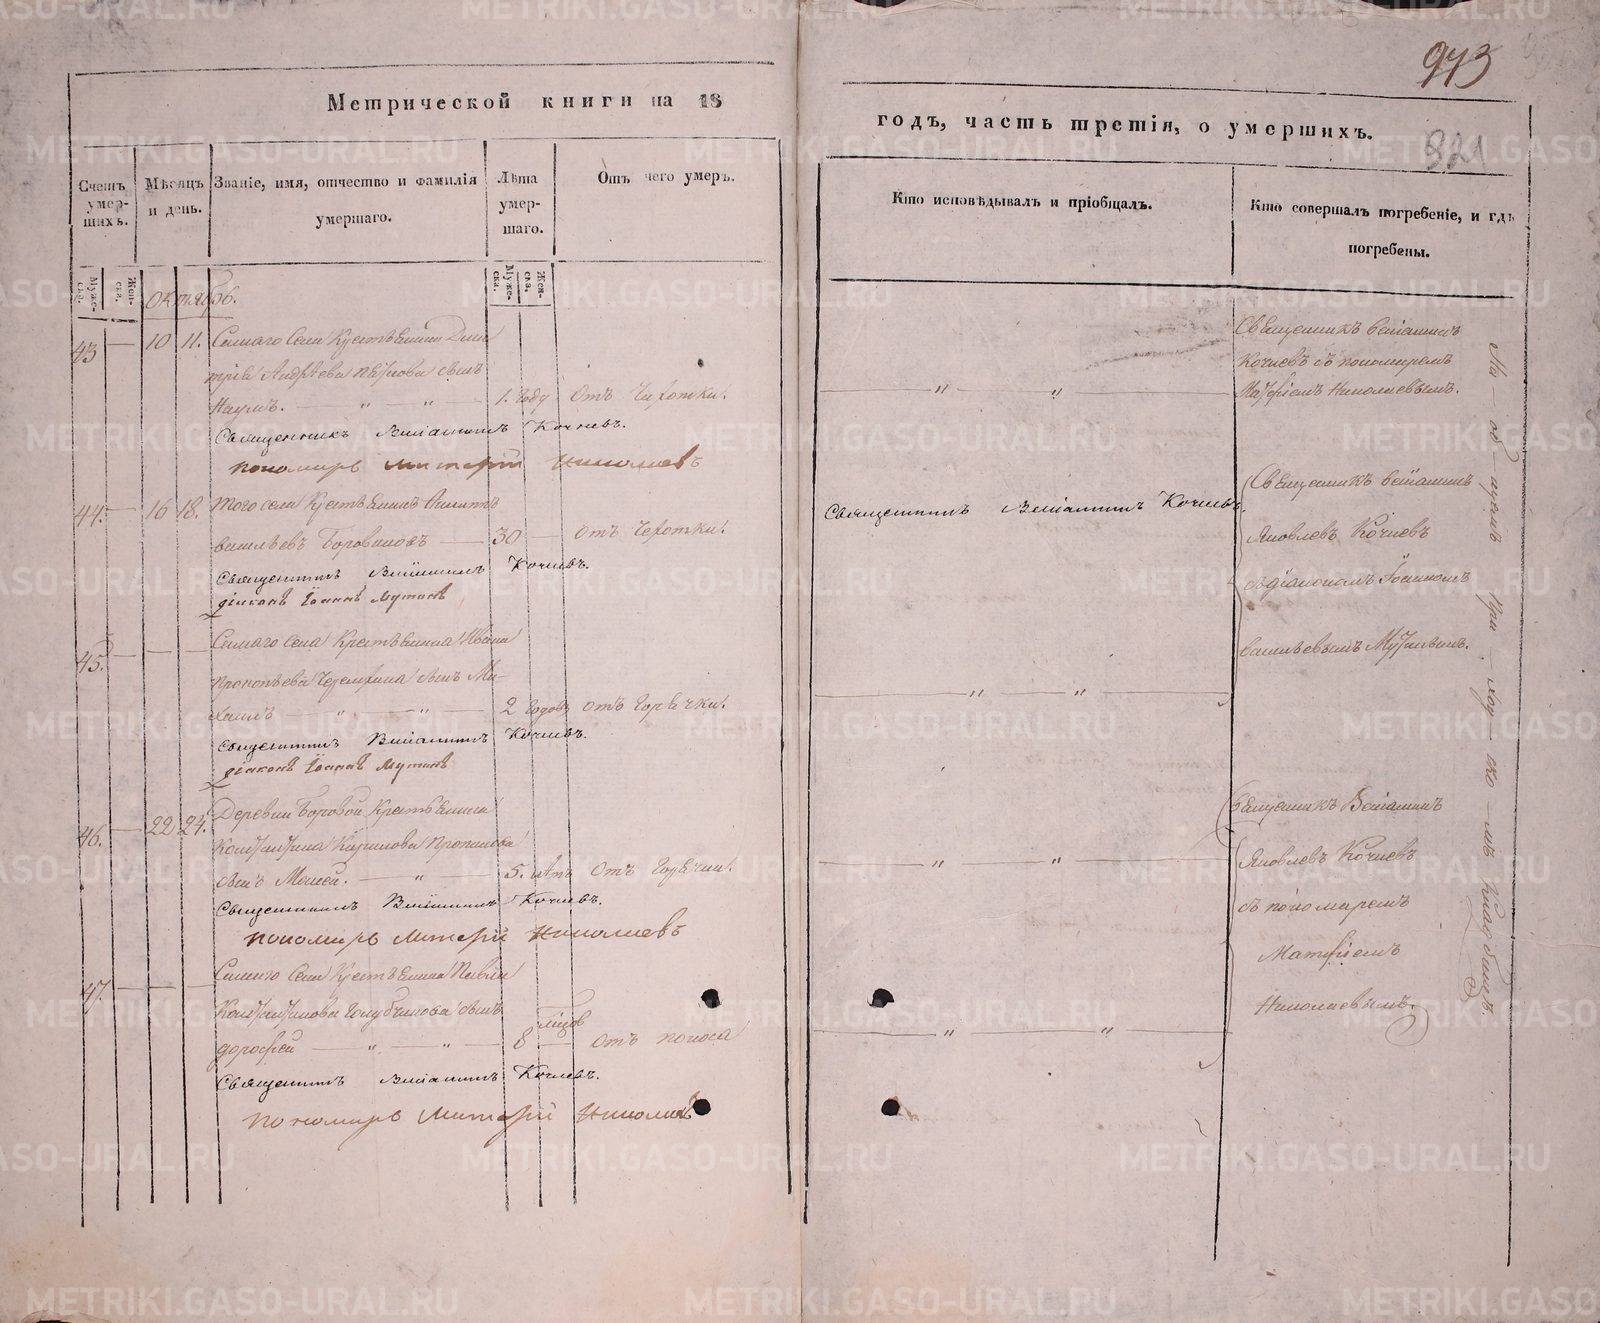 943
921
Метрической книги на 18
годъ, часть третія, о умершихъ.
Счетъ умер-шихъ.
Мѣсяцъ и день.
Званіе, имя, отчество и фамилія умершаго.
Лѣта умер-шаго.
Отъ чего умеръ.
Кто исповѣдывалъ и пріобщалъ.
Кто совершалъ погребеніе, и гдѣ погребены.
Муже-ска.
Жен-ска.
Муже-ска.
Жен-ска.
Октябрь.
43 — 10 11. Самаго Села Крестьянина Дми
трія Андреева сынъ
Наумъ. — „ — „ — 1. году Отъ Чахотки.
Священникъ Веніаминъ Кочневъ.
пономарь Николаевъ
Священникъ Веніаминъ
Кочневъ съ пономаремъ
Николаевымъ.
44. — 16 18. Того села Крестьянинъ
Васильевъ Боровиковъ — 30 — отъ Чахотки.
Священникъ Веніаминъ Кочневъ.
діаконъ Іоаннъ Мутинъ
Священникъ Веніаминъ Кочневъ.
Священникъ Веніаминъ
Яковлевъ Кочневъ
съ діакономъ Іоанномъ
Васильевымъ Мутинымъ.
45. — — — Самаго Села Крестьянина Ивана
Прокопьева сынъ Ми-
хаилъ — „ — „ — 2 годовъ отъ Горячки.
Священникъ Веніаминъ Кочневъ.
діаконъ Іоаннъ Мутинъ
46. — 22 24. Деревни Боровой Крестьянина
Константина Кирилова
сынъ Моисей. — „ — 5. лѣтъ Отъ Горячки.
Священникъ Веніаминъ Кочневъ.
пономарь Николаевъ
Священникъ Веніаминъ
Яковлевъ Кочневъ
съ пономаремъ
Николаевымъ.
47. — — — Самаго Села Крестьянина Павла
Константинова Голубчикова сынъ
Дорофей — „ — „ — 8 — отъ поноса
Священникъ Веніаминъ Кочневъ.
пономарь Николаевъ
На об-щемъ При-ход-ско-мъ Кладбищѣ.
METRIKI.GASO-URAL.RU